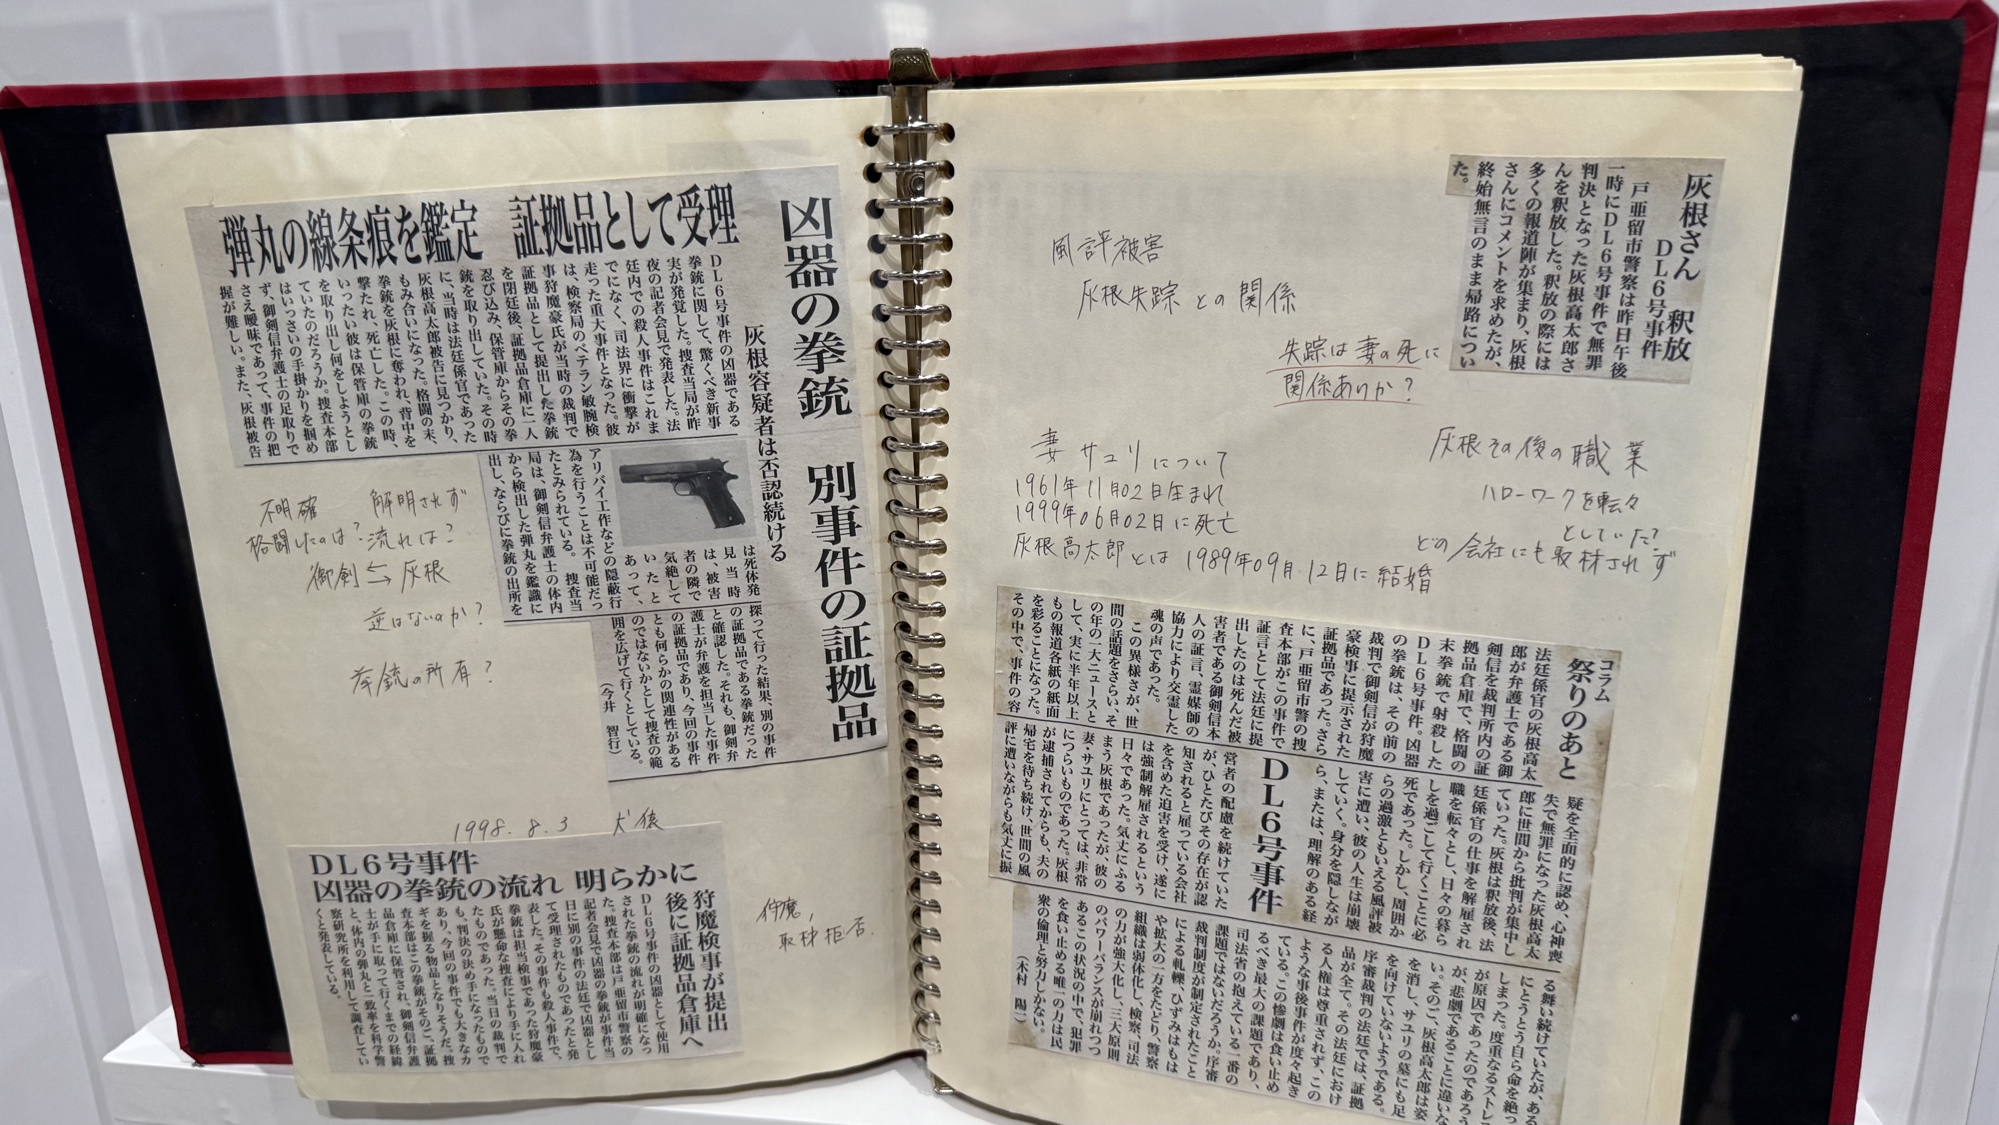 凶器の拳銃　別事件の証拠品
灰根容疑者は否認続ける
弾丸の線条痕を鑑定　証拠品として受理
DL6号事件の凶器である
拳銃に関して、驚くべき新事
実が発覚した。捜査当局が昨
夜の記者会見で発表した。法
廷内での殺人事件はこれま
でになく、司法界に衝撃が
走った重大事件となった。彼
は、検察局のベテラン敏腕検
事狩魔豪氏が当時の裁判で
証拠品として提出した拳銃
を閉廷後、証拠品倉庫に一人
忍び込み、保管庫からその拳
銃を取り出していた。その時
に、当時は法廷係官であった
灰根高太郎被告に見つかり、
もみ合いになった。格闘の末、
拳銃を灰根に奪われ、背中を
撃たれ、死亡した。この時、
いったい彼は保管庫の拳銃
を取り出し何をしようとし
ていたのだろうか。捜査本部
はいっさいの手掛かりを掴め
ず、御剣信弁護士の足取りで
さえ曖昧であって、事件の把
握が難しい。また、灰根被告
は死体発
見当時
は、被害
者の隣で
気絶して
いたと
あって、
アリバイ工作などの隠蔽行
為を行うことは不可能だっ
たとみられている。　捜査当
局は、御剣信弁護士の体内
から検出した弾丸を鑑識に
出し、ならびに拳銃の出所を
探って行った結果、別の事件
の証拠品である拳銃だった
と確認した。それも、御剣弁
護士が弁護を担当した事件
の証拠品であり、今回の事件
とも何らかの関連性がある
のではないかとして捜査の範
囲を広げて行くとしている。
（今井　智行）
不明確　解明されず
格闘したのは？流れは？
御剣⇆灰根
逆はないのか？
拳銃の所有？
1998.8.3
DL6号事件
凶器の拳銃の流れ 明らかに
狩魔検事が提出
後に証拠品倉庫へ
DL6号事件の凶器として使用
された拳銃の流れが明確になっ
た。捜査本部は戸亜留市警察の
記者会見で凶器の拳銃が事件当
日に別の事件の法廷で凶器とし
て受理されたものであったと発
表した。その事件も殺人事件で、
拳銃は担当検事であった狩魔豪
氏が懸命な捜査により手に入れ
たものであった。当日の裁判で
も、判決の決め手になったもので
あり、今回の事件でも大きなカ
ギを握る物品となりそうだ。捜
査本部はこの拳銃がそのご、証拠
品倉庫に保管され、御剣信弁護
士が手に取って行くまでの経緯
と、体内の弾丸と一致率を科学警
察研究所を利用して調査してい
くと発表している。
狩魔、
取材拒否。
灰根さん　釈放
DL6号事件
戸亜留市警察は昨日午後
一時にDL6号事件で無罪
判決となった灰根高太郎さ
んを釈放した。釈放の際には
多くの報道陣が集まり、灰根
さんにコメントを求めたが、
終始無言のまま帰路につい
た。
風評被害
灰根失踪との関係
失踪は妻の死に
関係ありか？
妻 サユリについて
1961年11月02日生まれ
1999年06月02日に死亡
灰根高太郎とは1989年09月12日に結婚
灰根その後の職業
ハローワークを転々
としていた？
どの会社にも取材されず
コラム
祭りのあと
DL6号事件
法廷係官の灰根高太
郎が弁護士である御
剣信を裁判所内の証
拠品倉庫で、格闘の
末拳銃で射殺した
DL6号事件。凶器
の拳銃は、その前の
裁判で御剣信が狩魔
豪検事に提示された
証拠品であった。さら
に、戸亜留市警の捜
査本部がこの事件で
証言として法廷に提
出したのは死んだ被
害者である御剣信本
人の証言、霊媒師の
協力により交霊した
魂の声であった。
この異様さが、世
間の話題をさらい、そ
の年の二大ニュースと
して、実に半年以上
もの報道各紙の紙面
を彩ることになった。
その中で、事件の容
疑を全面的に認め、心神喪
失で無罪になった灰根高太
郎に世間から批判が集中し
ていった。灰根は釈放後、法
廷係官の仕事を解雇され
職を転々とし、日々の暮ら
しを過ごして行くことに必
死であった。しかし、周囲か
らの過激ともいえる風評被
害に遭い、彼の人生は崩壊
していく。身分を隠しなが
ら、または、理解のある経
営者の配慮を続けていた
が、ひとたびその存在が認
知されると雇っている会社
を含めた迫害を受け、遂に
は強制解雇されるという
日々であった。気丈にふる
まう灰根であったが、彼の
妻・サユリにとっては、非常
につらいものであった。灰根
が逮捕されてからも、夫の
帰宅を待ち続け、世間の風
評に遭いながらも気丈に振
る舞い続けていたが、ある
にとうとう自ら命を絶っ
しまった。度重なるストレ
が原因であったのであろう
が、悲劇であることに違いな
い。そのご、灰根高太郎は姿
を消し、サユリの墓にも足
を向けていないようである。
序審裁判の法廷では、証拠
品が全て。その法廷におけ
る人権は尊重されず、この
ような事後事件が度々起き
ている。この惨劇は食い止め
るべき最大の課題であり、
司法省の抱えている一番の
課題ではないだろうか。序審
裁判制度が制定されたこと
による軋轢、ひずみはもは
や拡大の一方をたどり、警察
組織は弱体化し、検察、司法
の力が強大化し、三大原則
のパワーバランスが崩れつつ
あるこの状況の中で、犯罪
を食い止める唯一の力は民
衆の倫理と努力しかない。
（木村　陽一）